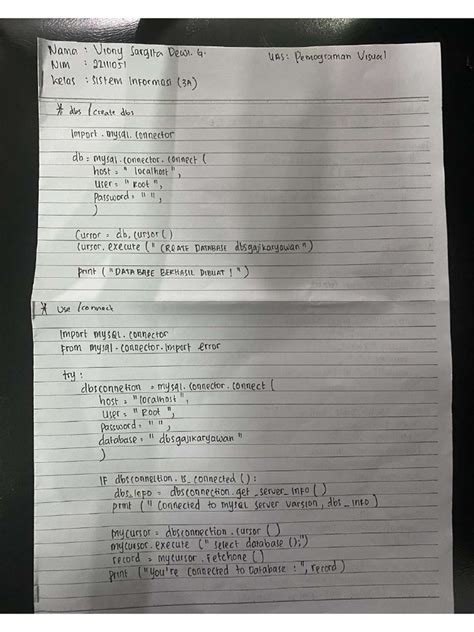 Nama : Viony Sargita Dewi. G.
UAS : Pemograman Visual
NIM : 22111051
Kelas : Sistem Informasi (3A)
* dbs / create dbs
Import . mysql . connector
db = mysql . connector . connect (
host = " localhost ",
user = " Root ",
Password = " ",
)
Cursor = db. cursor ( )
Cursor. execute ( " CREATE DATABASE dbsgajikaryawan " )
print ( " DATA BASE BERHASIL DIBUAT ! " )
* Use / connect
Import mysql . connector
From mysql . connector . Import error
try :
dbsconnetion = mysql . connector . connect (
host = " localhost ",
User = " Root ",
Password = " ",
database = " dbsgajikaryawan "
)
IF dbsconnection . Is_connected ( ) :
dbs_Info = dbsconnection . get_server_Info ( )
print ( " Connected to mysql server varsion , dbs_info )
Mycursor = dbsconnection . cursor ( )
mycursor . execute ( " select database (); " )
record = mycursor . Fetchone ( )
Print ( " You're connected to Database : ", record )